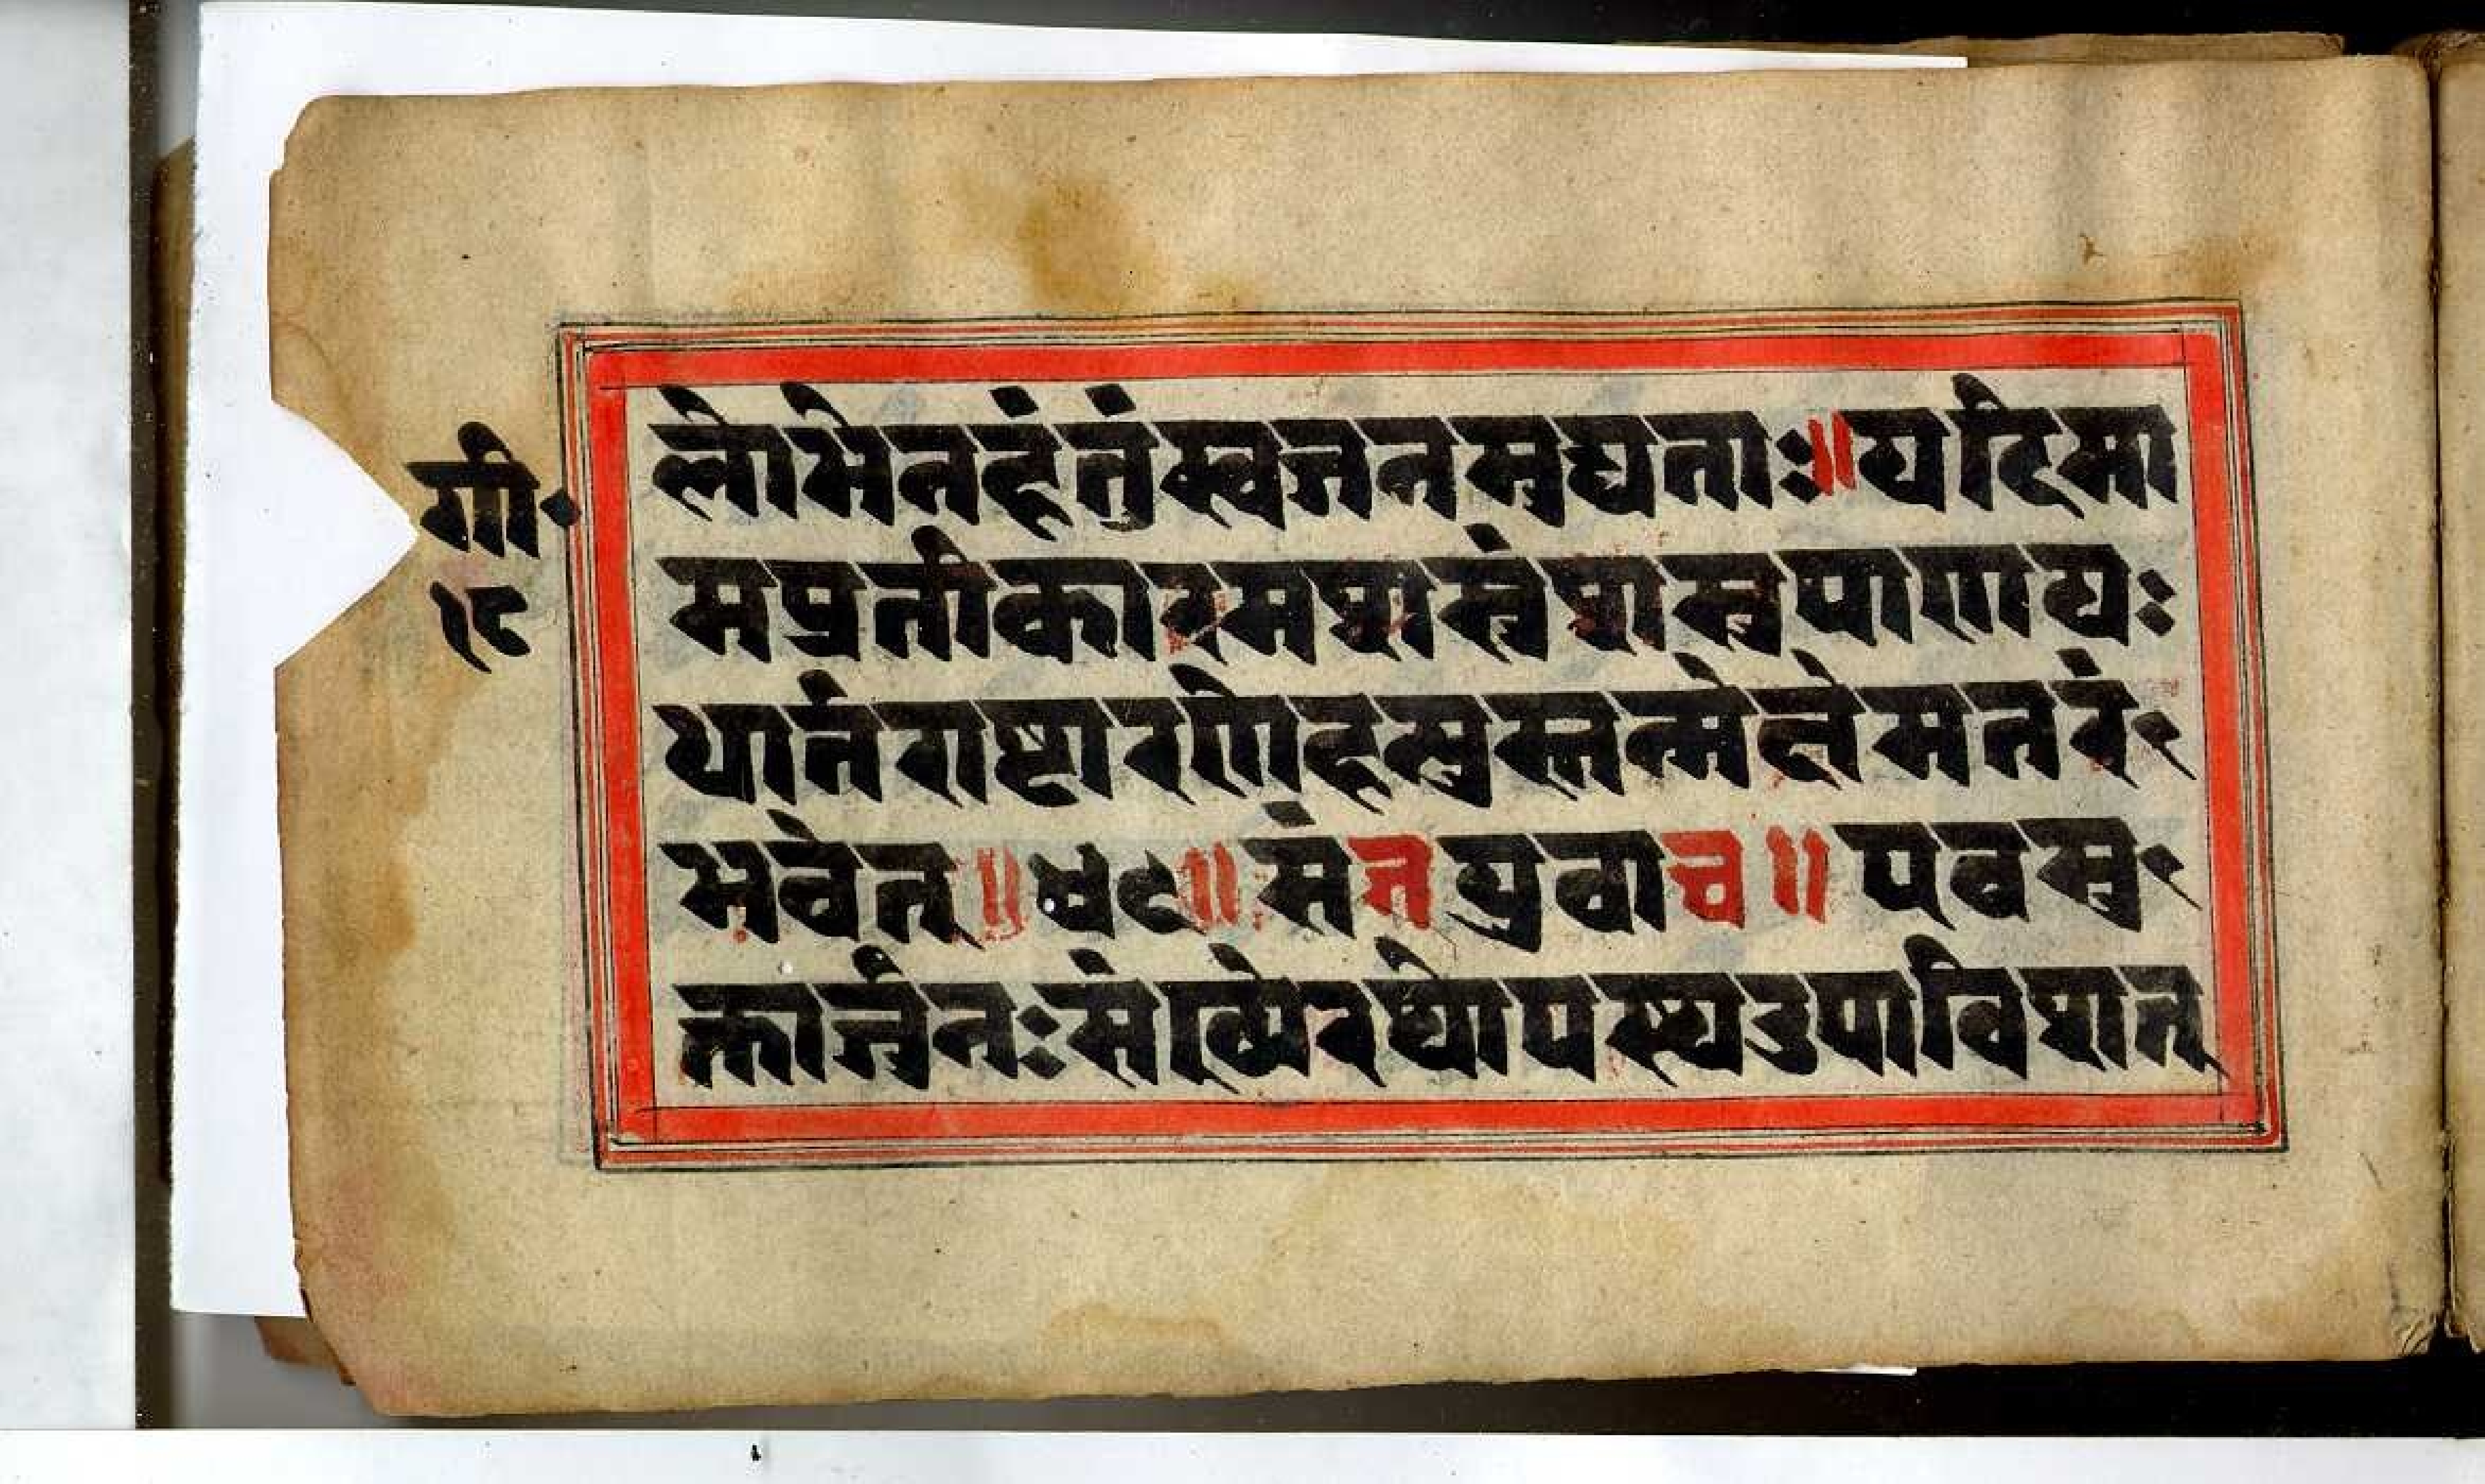 गी॰
१८
लोभेनहंतुंस्वजनमुद्यताः॥यदिमा
मप्रतीकारमशस्त्रंशस्त्रपाणयः
धार्तराष्ट्रारणेहन्युस्तन्मेक्षेमतरं
भवेत्॥४६॥संजयउवाच॥एवमु
क्त्वार्जुनःसंख्येरथोपस्थउपाविशत्